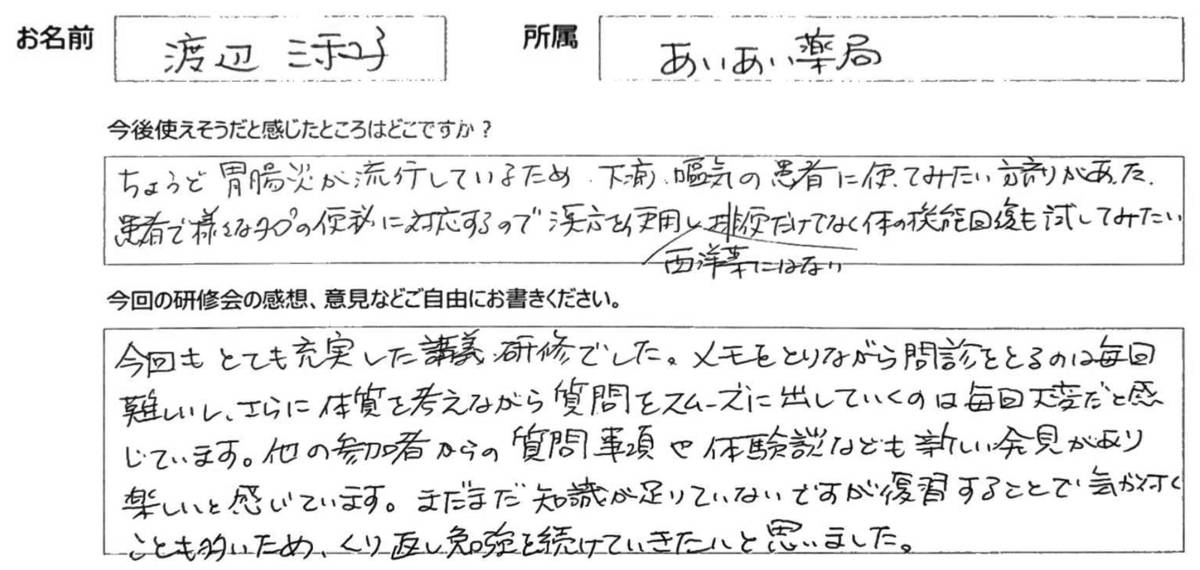 お名前 渡辺 涼子 所属 あいあい薬局
今後使えそうだと感じたところはどこですか?
ちょうど胃腸炎が流行しているため、下痢、嘔気の患者に使ってみたい方剤があった。
患者で様々なタイプの便秘に対応するので漢方を使用し、排便だけでなく体の機能回復も試してみたい
西洋薬にはない
今回の研修会の感想、意見などご自由にお書きください。
今回もとても充実した講義、研修でした。メモをとりながら問診をとるのは毎回
難しいし、さらに体質を考えながら質問をスムーズに出していくのは毎回大変だと感
じています。他の参加者からの質問事項や体験談なども新しい発見があり
楽しいと感じています。まだまだ知識が足りていないですが復習することで気が付く
ことも多いため、くり返し勉強を続けていきたいと思いました。